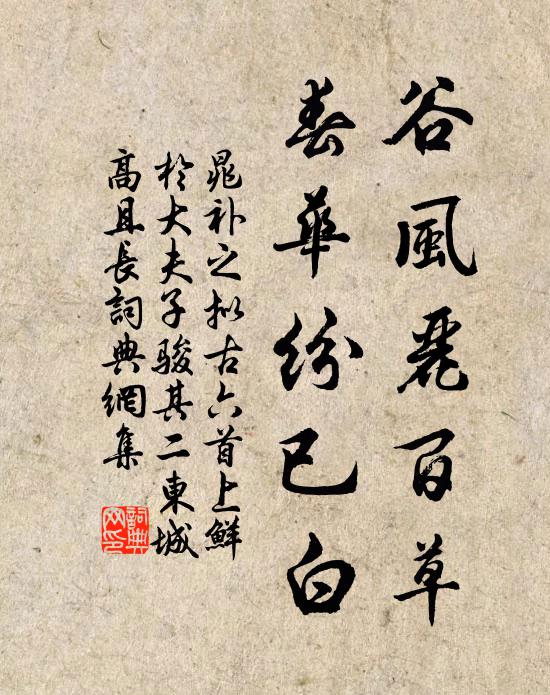 谷風麗百草
春華紛已白
晁补之拟古六首上鮮
於大夫子駿其二東城
高且長詞典網集
詞典
网印